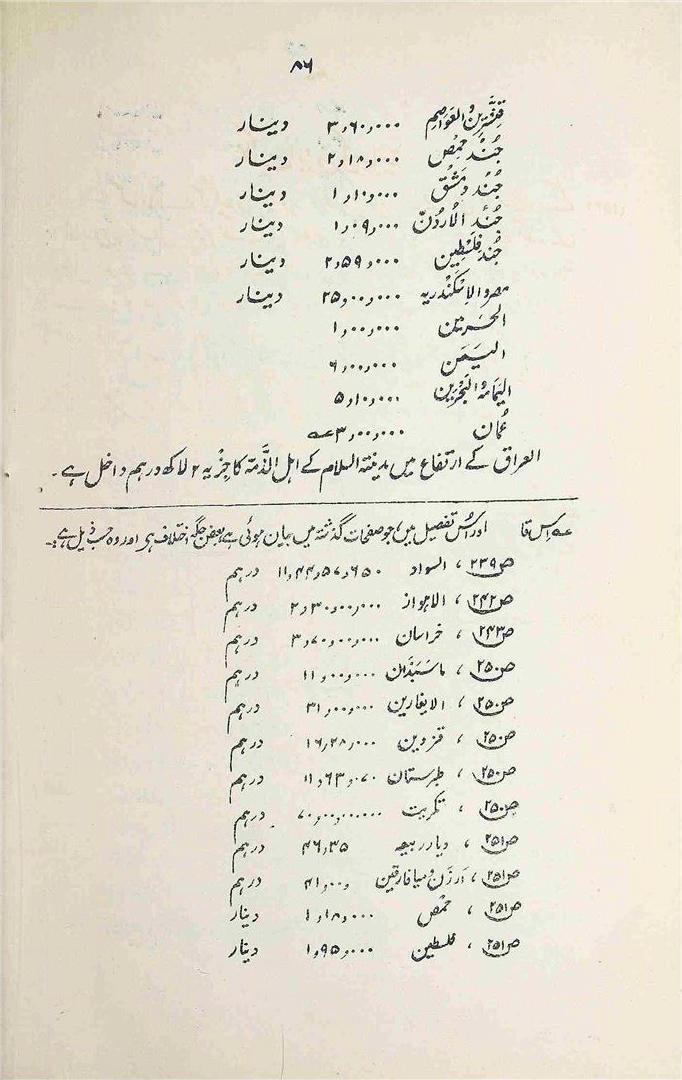 ۸۶
قِنَّسرِین و العَوَاصِم ۳,۶۰,۰۰۰ دینار
جُند حِمْص ۲,۱۸,۰۰۰ دینار
جُند دِمَشْق ۱,۱۰,۰۰۰ دینار
جُند الاُرْدُنّ ۱,۰۹,۰۰۰ دینار
جُند فِلَسْطِین ۲,۵۹,۰۰۰ دینار
مصر و الاِسْکَنْدَریه ۲۵,۰۰,۰۰۰ دینار
الحَرَمین ۱,۰۰,۰۰۰
الیَمَن ۶,۰۰,۰۰۰
الیَمَامَہ و البَحْرَین ۵,۱۰,۰۰۰
عُمَان ۳,۰۰,۰۰۰ عہ
العراق کے ارتفاع میں مدینۃ السلام کے اهل الذَّمة کا جِزْیہ ۲ لاکھ درہم داخل ہے۔
عہ اِس قا اور اُس تفصیل میں، جو صفحات گذشتہ میں بیان ہوئی ہے، بعض جگہ اختلاف ہر اور وہ حسب ذیل ہے:۔
ص۲۳۹، السواد ۱۱,۴۴,۵۷,۶۵۰ درہم
ص۲۴۲، الاہواز ۲,۳۰,۰۰,۰۰۰ درہم
ص۲۴۳، خراسان ۳,۷۰,۰۰,۰۰۰ درہم
ص۲۵۰، ماسَبَذَان ۱۱,۰۰,۰۰۰ درہم
ص۲۵۰، الایغارین ۳۱,۰۰,۰۰۰ درہم
ص۲۵۰، قزوین ۱۶,۲۸,۰۰۰ درہم
ص۲۵۰، طبرستان ۱۱,۶۳,۰۷۰ درہم
ص۲۵۰، تکریت ۷۰,۰۰,۰۰,۰۰۰ درہم
ص۲۵۱، دیار ربیعہ ۴۶,۳۵ درہم
ص۲۵۱، اَرزَن و میافارقین ۴۱,۰۰,۰ درہم
ص۲۵۱، حِمْص ۱,۱۸,۰۰۰ دینار
ص۲۵۱، فلسطین ۱,۹۵,۰۰۰ دینار